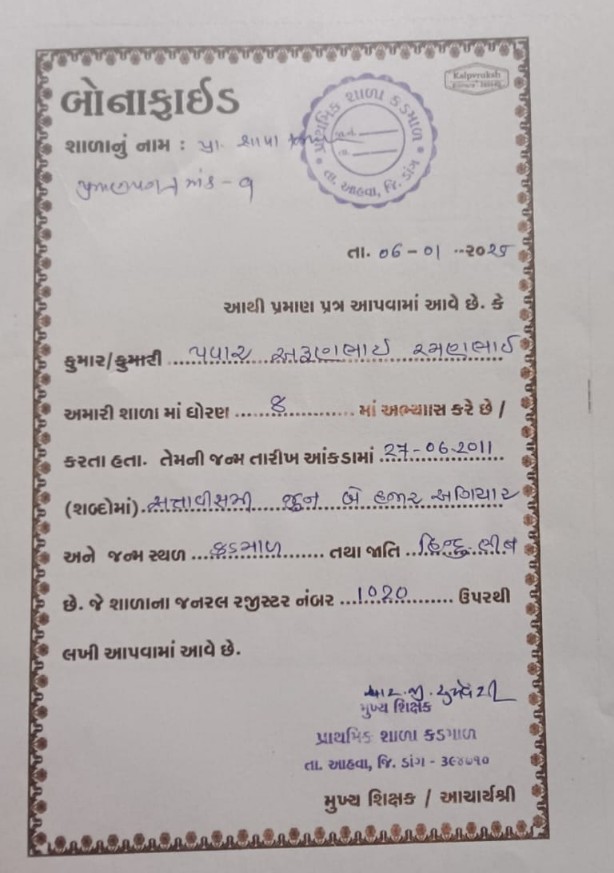 Kalpvruksh
બોનાફાઈડ
પ્રાથમિક શાળા કડમાળ
તા. આહવા, જિ. ડાંગ
શાળાનું નામ : પ્રા. શાળા
પ્રમાણપત્ર ક્રમાંક - ૧
તા. 06 - 01 -૨૦૨૫
આથી પ્રમાણ પત્ર આપવામાં આવે છે. કે
કુમાર/કુમારી પવાર અરૂણભાઈ રમણભાઈ
અમારી શાળા માં ધોરણ 8 માં અભ્યાસ કરે છે /
કરતા હતા. તેમની જન્મ તારીખ આંકડામાં 27-06-2011
(શબ્દોમાં) સત્તાવીસમી જૂન બે હજાર અગિયાર
અને જન્મ સ્થળ કડમાળ તથા જાતિ હિન્દુ ભીલ
છે. જે શાળાના જનરલ રજીસ્ટર નંબર 1020 ઉપરથી
લખી આપવામાં આવે છે.
મુખ્ય શિક્ષક
પ્રાથમિક શાળા કડમાળ
તા. આહવા, જિ. ડાંગ - ૩૯૪૭૧૦
મુખ્ય શિક્ષક / આચાર્યશ્રી